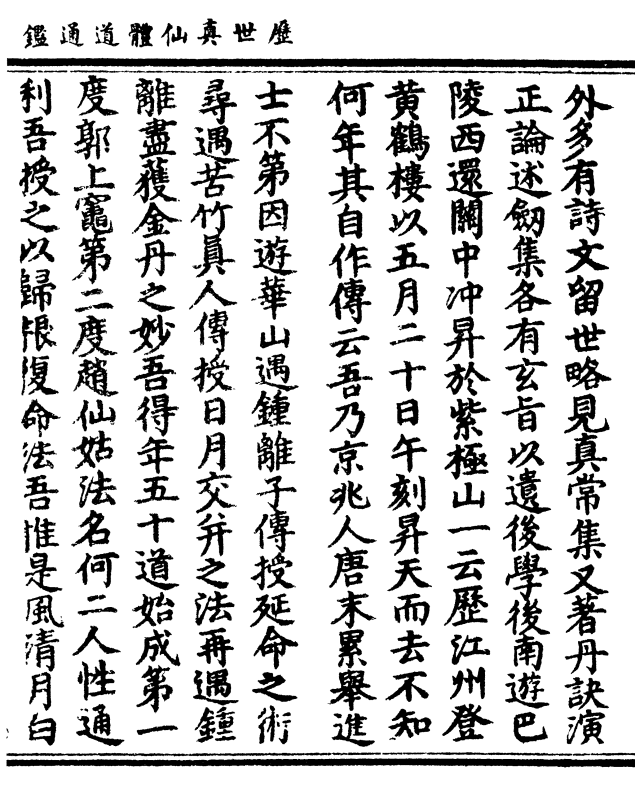 歷世真仙體道通鑑
外多有詩文留世略見真常集又著丹訣演
正論述劒集各有玄旨以遺後學後南遊巴
陵西還關中冲昇於紫極山一云歷江州登
黃鶴樓以五月二十日午刻昇天而去不知
何年其自作傳云吾乃京兆人唐末累舉進
士不第因遊華山遇鍾離子傳授延命之術
尋遇苦竹真人傳授日月交并之法再遇鍾
離盡獲金丹之妙吾得年五十道始成第一
度郭上竈第二度趙仙姑法名何二人性通
利吾授之以歸根復命法吾惟是風清月白